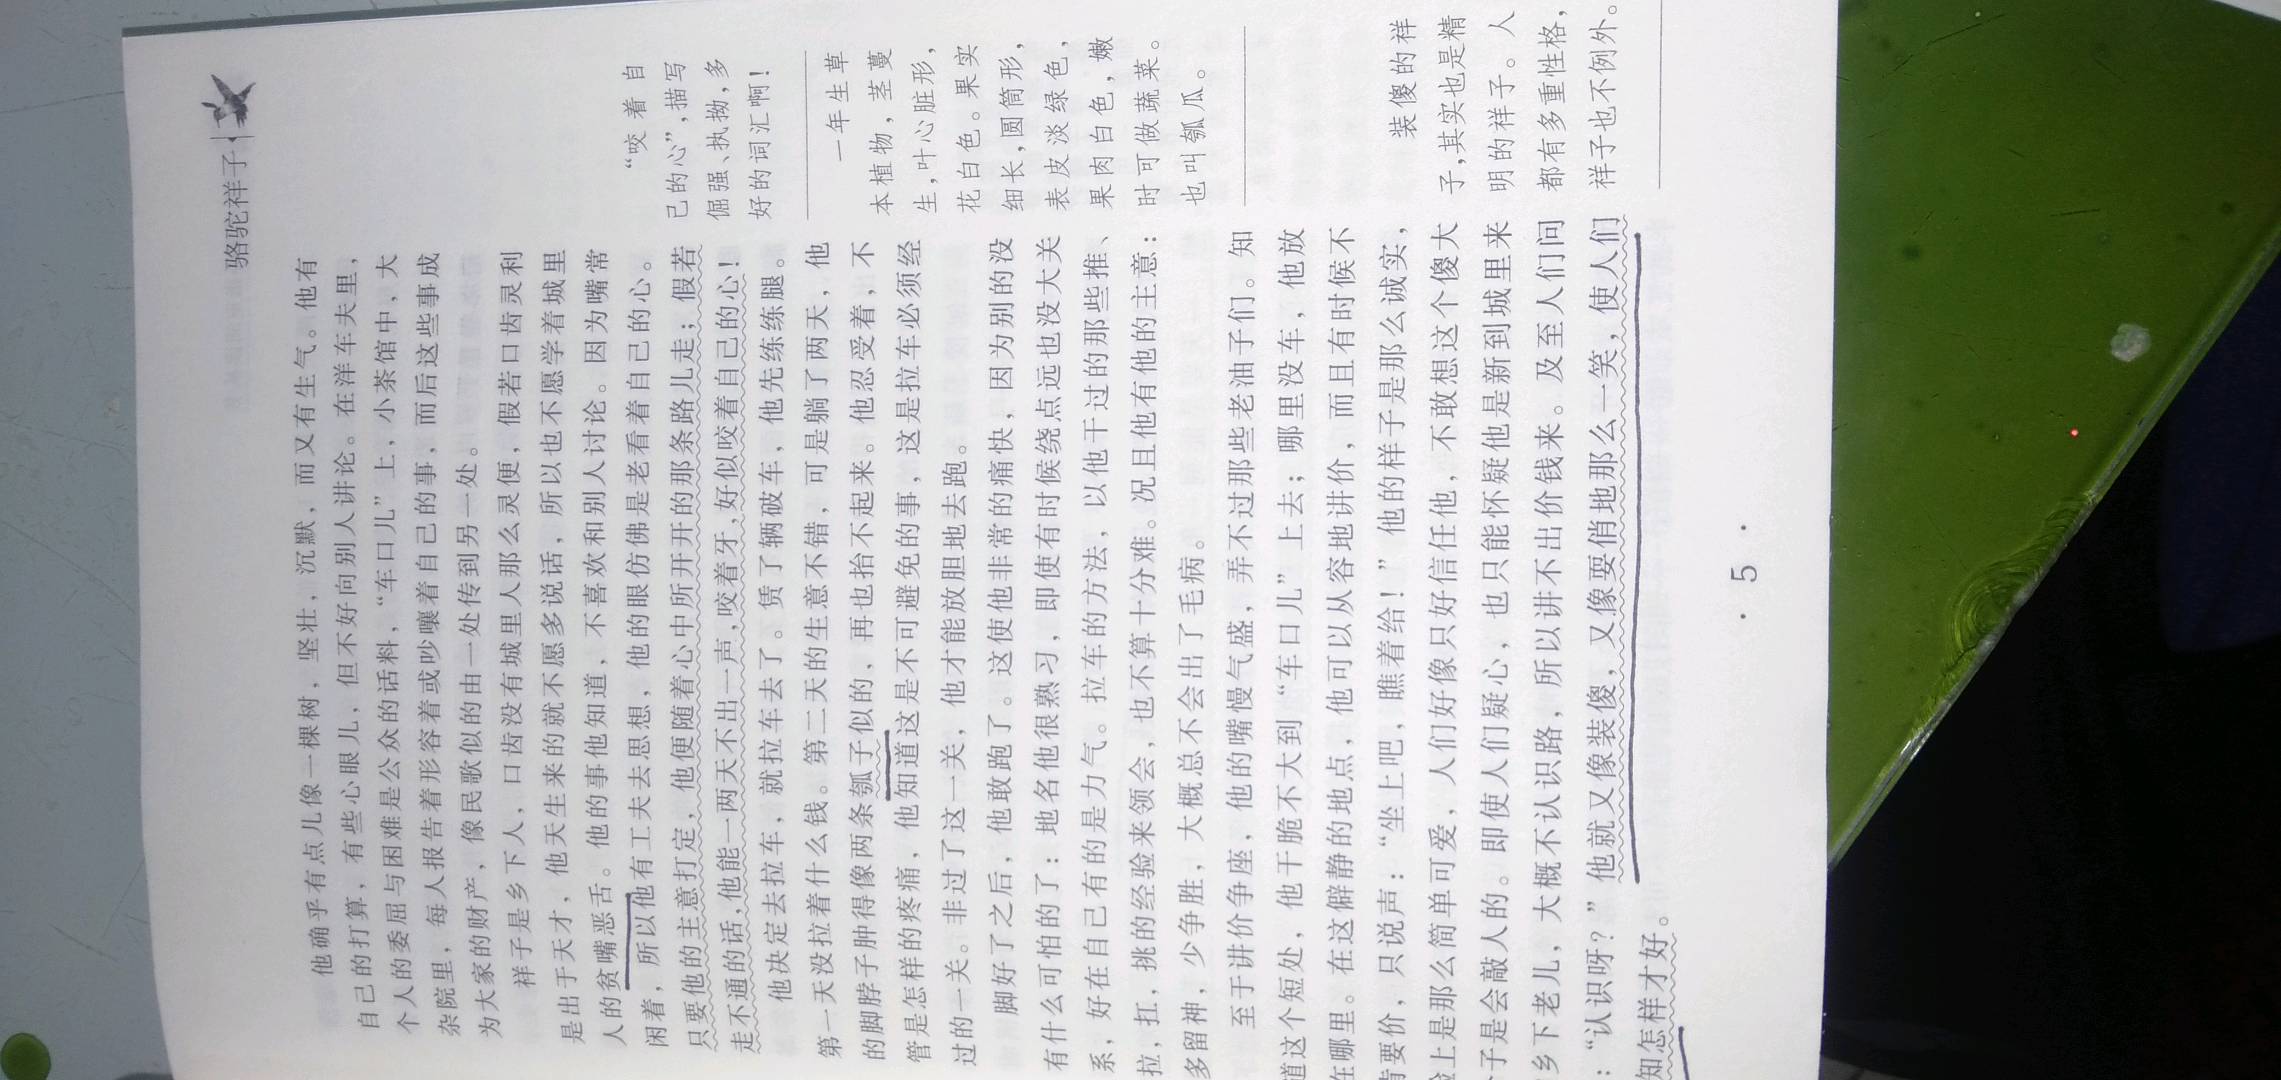 骆驼祥子
他确乎有点儿像一棵树，坚壮，沉默，而又有生气。他有
自己的打算，有些心眼儿，但不好向别人讲论。在洋车夫里，
个人的委屈与困难是公众的话料，“车口儿”上，小茶馆中，大
杂院里，每人报告着形容着或吵嚷着自己的事，而后这些事成
为大家的财产，像民歌似的由一处传到另一处。
祥子是乡下人，口齿没有城里人那么灵便，假若口齿灵利
是出于天才，他天生来的就不愿多说话，所以也不愿学着城里
人的贫嘴恶舌。他的事他知道，不喜欢和别人讨论。因为嘴常
闲着，所以他有工夫去思想，他的眼仿佛是老看着自己的心。
只要他的主意打定，他便随着心中所开开的那条路儿走；假若
走不通的话，他能一两天不出一声，咬着牙，好似咬着自己的心！
他决定去拉车，就拉车去了。赁了辆破车，他先练练腿。
第一天没拉着什么钱。第二天的生意不错，可是躺了两天，他
的脚脖子肿得像两条瓠子似的，再也抬不起来。他忍受着，不
管是怎样的疼痛，他知道这是不可避免的事，这是拉车必须经
过的一关。非过了这一关，他才能放胆地去跑。
脚好了之后，他敢跑了。这使他非常的痛快，因为别的没
有什么可怕的了：地名他很熟习，即使有时候绕点远也没大关
系，好在自己有的是力气。拉车的方法，以他干过的那些推、
拉，扛，挑的经验来领会，也不算十分难。况且他有他的主意：
多留神，少争胜，大概总不会出了毛病。
至于讲价争座，他的嘴慢气盛，弄不过那些老油子们。知
道这个短处，他干脆不大到“车口儿”上去；哪里没车，他放
在哪里。在这僻静的地点，他可以从容地讲价，而且有时候不
肯要价，只说声：“坐上吧，瞧着给！”他的样子是那么诚实，
脸上是那么简单可爱，人们好像只好信任他，不敢想这个傻大
个子是会敲人的。即使人们疑心，也只能怀疑他是新到城里来
乡下老儿，大概不认识路，所以讲不出价钱来。及至人们问
：“认识呀？”他就又像装傻，又像耍俏地那么一笑，使人们
知怎样才好。
“咬着自
己的心”，描写
倔强、执拗，多
好的词汇啊！
一年生草
本植物，茎蔓
生，叶心脏形，
花白色。果实
细长，圆筒形，
表皮淡绿色，
果肉白色，嫩
时可做蔬菜。
也叫瓠瓜。
装傻的祥
子，其实也是精
明的祥子。人
都有多重性格，
祥子也不例外。
· 5 ·